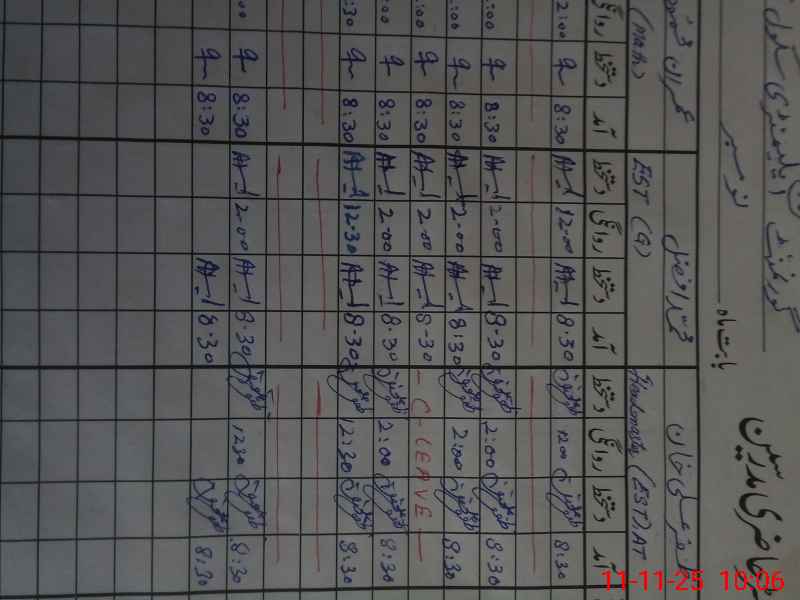 حاضری مدرسین
بابت ماہ نومبر گورنمنٹ ایلیمنٹری سکول
علی خان محمد افضل عمران
Headmaster (EST) AT EST (G) (Math)
آمد دستخط روانگی دستخط آمد دستخط روانگی دستخط آمد دستخط روانگی
8:30 1200 8.30 12.00 8:30 2:00
8:30 2:00 8.30 2.00 8:30 :00
8:30 2:00 8:30 2.00 8:30 :00
C-LEAVE 8-30 2.00 8:30
8:30 2:00 8.30 2.00 8:30 :00
8:30 12:30 8.30 12.30 8:30 :30
8:30 1230 8.30 2.00 8:30 :00
8:30 8.30 8:30
11-11-25 10:06